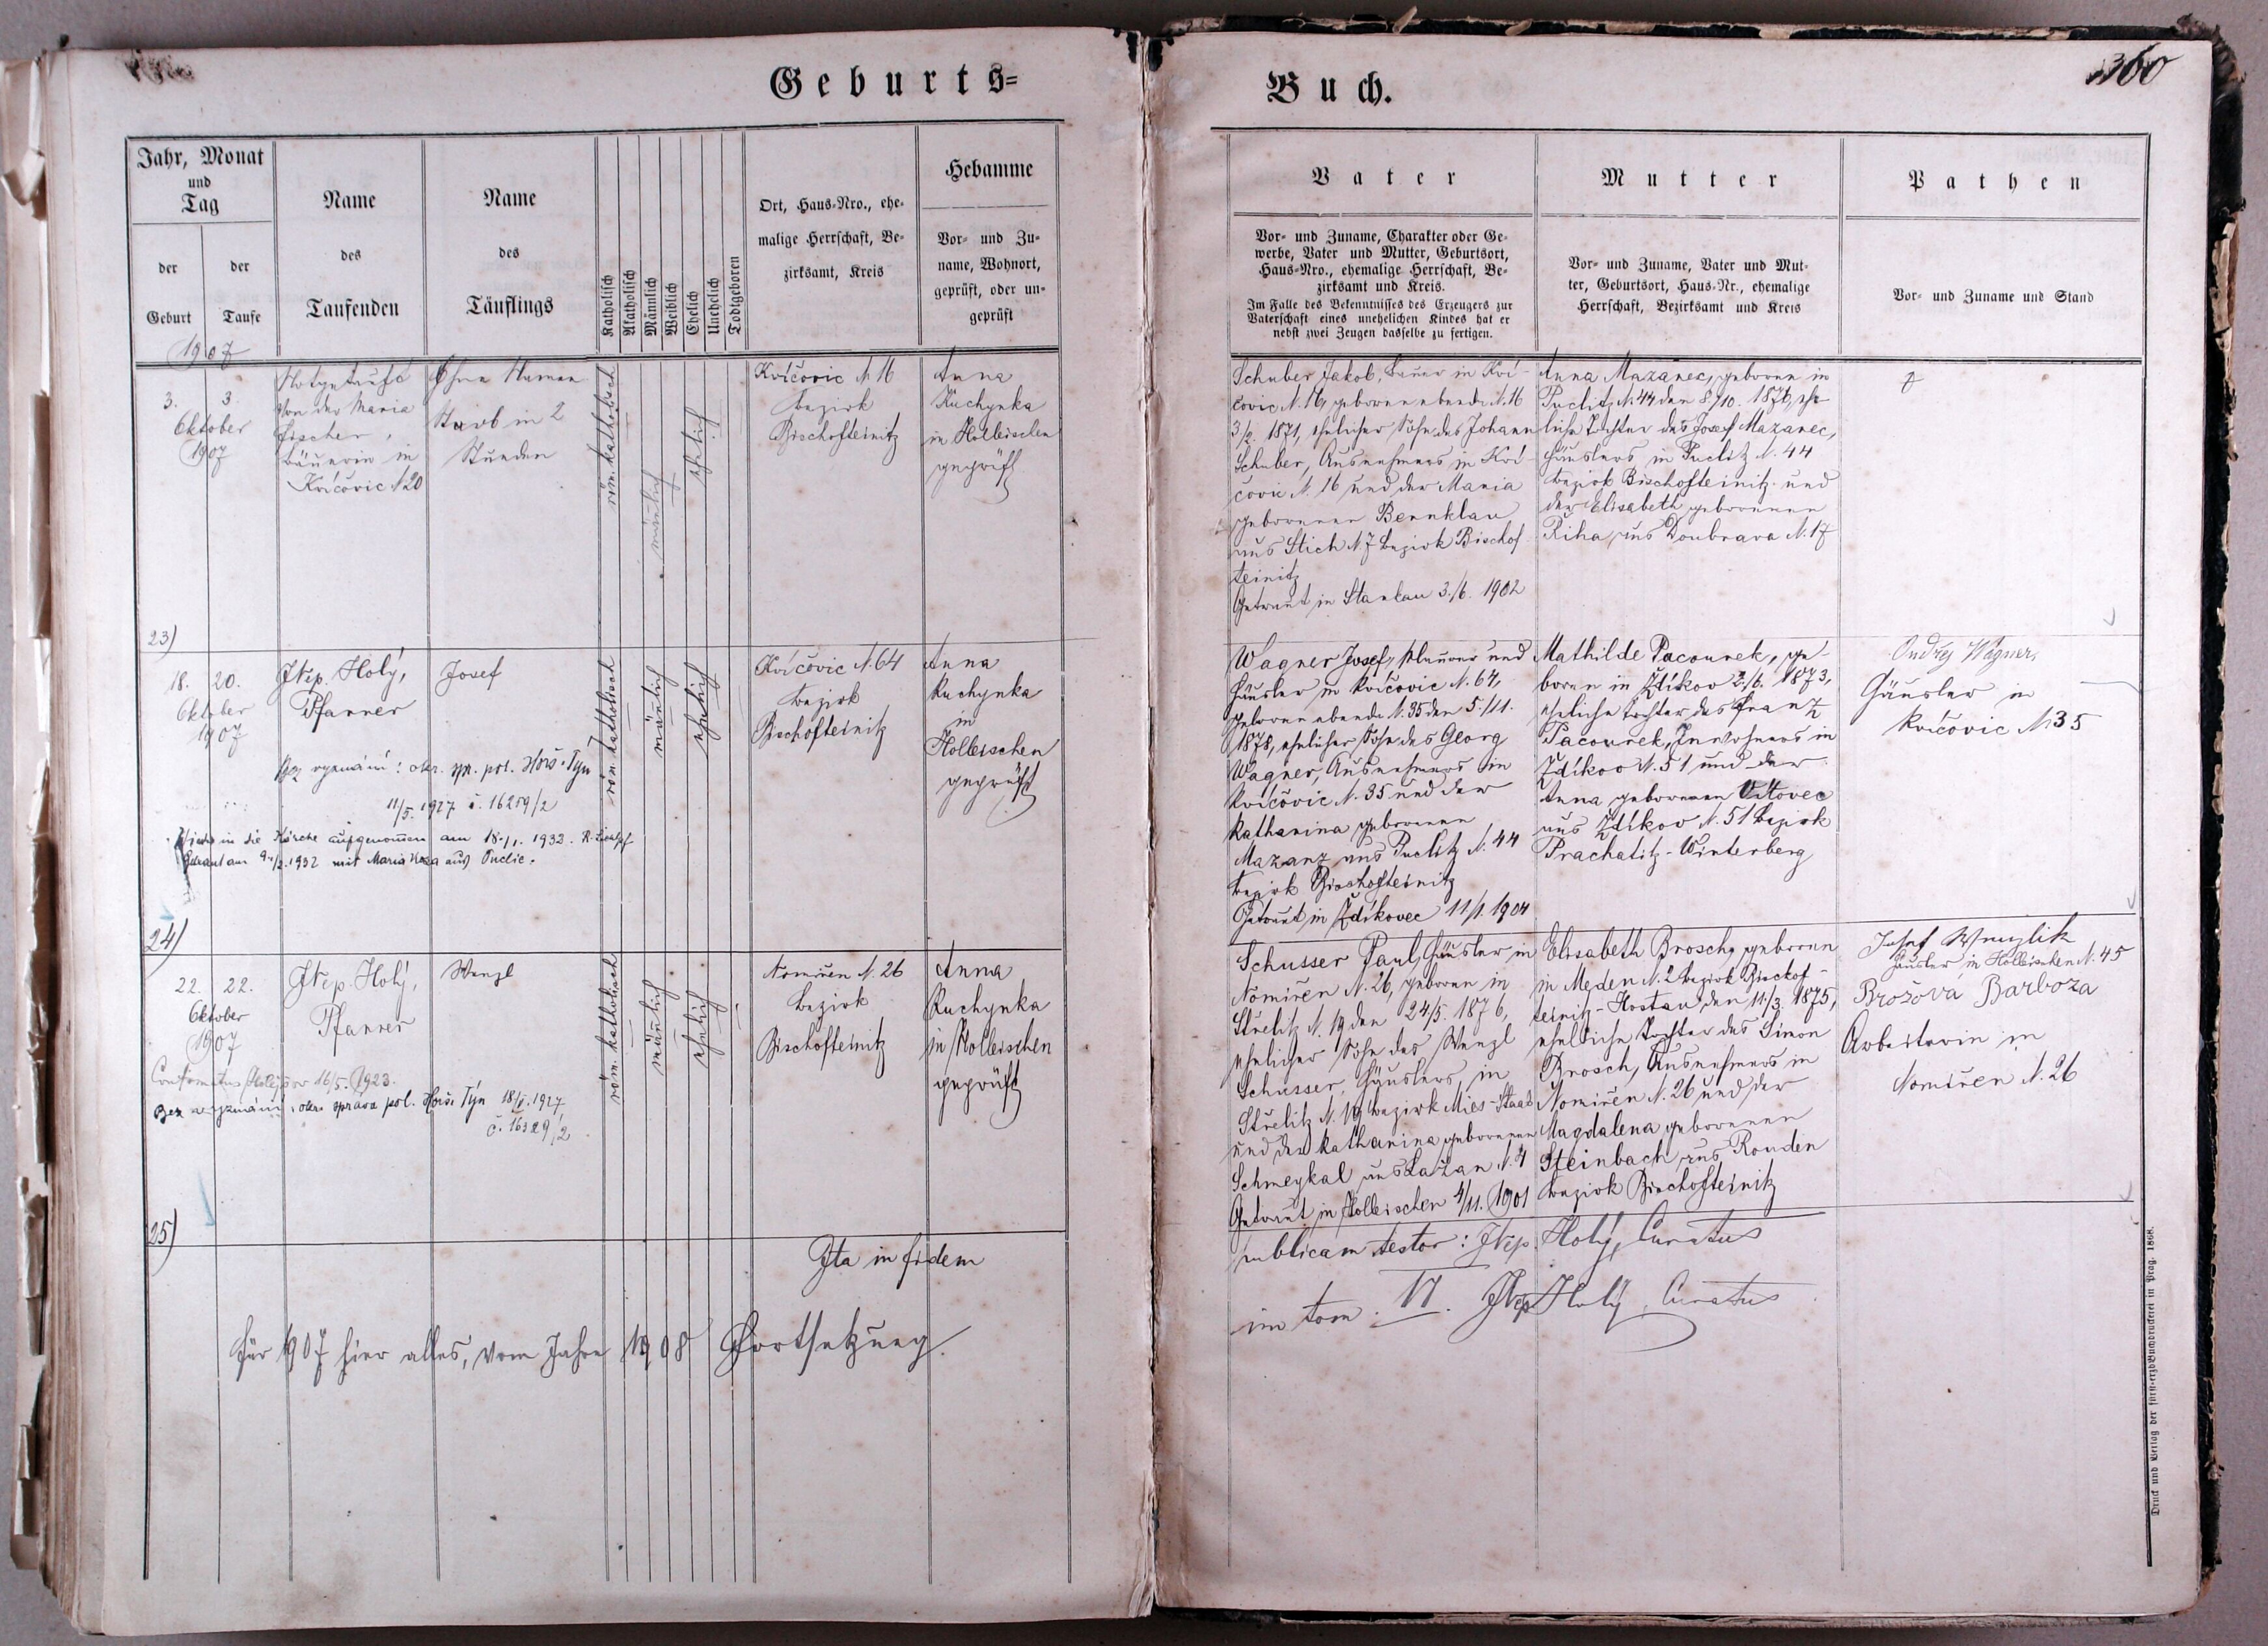 Geburts=
Buch.
360
Jahr, Monat
und
Tag
der
Geburt
der
Taufe
Name
des
Taufenden
Name
des
Täuflings
Katholisch
Akatholisch
Männlich
Weiblich
Ehelich
Unehelich
Todtgeboren
Ort, Haus=Nro., ehe=
malige Herrschaft, Be=
zirksamt, Kreis
Hebamme
Vor= und Zu=
name, Wohnort,
geprüft, oder un=
geprüft
Vater
Vor= und Zuname, Charakter oder Ge=
werbe, Vater und Mutter, Geburtsort,
Haus=Nro., ehemalige Herrschaft, Be=
zirksamt und Kreis.
Im Falle des Bekenntnisses des Erzeugers zur
Vaterschaft eines unehelichen Kindes hat er
nebst zwei Zeugen dasselbe zu fertigen.
Mutter
Vor= und Zuname, Vater und Mut=
ter, Geburtsort, Haus=Nr., ehemalige
Herrschaft, Bezirksamt und Kreis
Pathen
Vor= und Zuname und Stand
1907
3. 3.
Oktober
1907
Nothgetauft
von der Maria
Fischer,
Bäuerin in
Kvíčovic N 20
Ohne Namen
Starb in 2
Stunden
röm. katholisch
männlich
ehelich
Kvíčovic N 16
Bezirk
Bischofteinitz
Anna
Kuchynka
in Holleischen
geprüft
Schuber Jakob, Bauer in Kví-
čovic N. 16, geboren ebenda N. 16
3/2. 1871, ehelicher Sohn des Johann
Schuber, Ausnehmers in Kví-
čovic N. 16 und der Maria
geborenen Bernklau
aus Stich N. 7 Bezirk Bischof
teinitz
Getraut in Stankau 3./6. 1902
Anna Mazanec, geboren in
Puclitz N. 44 den 8/10. 1876, ehe
liche Tochter des Josef Mazanec,
Häuslers in Puclitz N. 44
Bezirk Bischofteinitz und
der Elisabeth geborenen
Řiha aus Doubrava N. 17
23)
18. 20.
Oktober
1907
JNep. Holý,
Pfarrer
Josef
röm. katholisch
männlich
ehelich
Kvíčovic N. 64
Bezirk
Bischofteinitz
Anna
Kuchynka
in
Holleischen
geprüft
Bez vyznání: okr. spr. pol. Horš. Týn
11/5. 1927 č. 16259/2
Wieder in die Kirche aufgenommen am 18./1. 1932.
Getraut am 9./2. 1932 mit Maria aus Puclic.
Wagner Josef, Maurer und
Häusler in Kvíčovic N. 64,
geboren ebenda N. 35 den 5./11.
1878, ehelicher Sohn des Georg
Wagner, Ausnehmers in
Kvíčovic N. 35 und der
Katharina geborenen
Mazanz aus Puclitz N. 44
Bezirk Bischofteinitz
Getraut in Zdíkovec 11/1. 1904
Mathilde Pacourek, ge-
boren in Zdíkov 2./6. 1873,
eheliche Tochter des Franz
Pacourek, Inwohners in
Zdíkov N. 51 und der
Anna geborenen Vítovec
aus Zdíkov N. 51 Bezirk
Prachatitz-Winterberg
Ondřej Wagner,
Häusler in
Kvíčovic N 35
24)
22. 22.
Oktober
1907
JNep. Holý,
Pfarrer
Wenzl
röm. katholisch
männlich
ehelich
Nomiřen N. 26
Bezirk
Bischofteinitz
Anna
Kuchynka
in Holleischen
geprüft
Confirmatus Holejšov 16/5. 1923.
Bez vyznání: okr. správa pol. Horš. Týn 18/5. 1927
č. 16329/2
Schusser Paul, Häusler in
Nomiřen N. 26, geboren in
Střelitz N. 19 den 24/5. 1876,
ehelicher Sohn des Wenzl
Schusser, Häuslers in
Střelitz N. 19 Bezirk Mies-Staab
und der Katharina geborenen
Schmeykal aus Lažan N. 4
Getraut in Holleischen 4/11. 1901
Elisabeth Brosch, geboren
in Meden N. 2 Bezirk Bischof-
teinitz-Hostau den 11./3. 1875,
eheliche Tochter des Simon
Brosch, Ausnehmers in
Nomiřen N. 26 und der
Magdalena geborenen
Steinbach aus Ronden
Bezirk Bischofteinitz
Josef Wenzlik
Häusler in Holleischen N. 45
Brožova Barbora
Arbeiterin in
Nomiřen N. 26
25)
Ita in fidem
publicam testor: JNep. Holý, Curatus
Für 1907 hier alles, vom Jahre 1908 Fortsetzung
im tom. VI. JNep Holý, Curatus
Druck und Verlag der fürst=erzb Buchdruckerei in Prag. 1868.